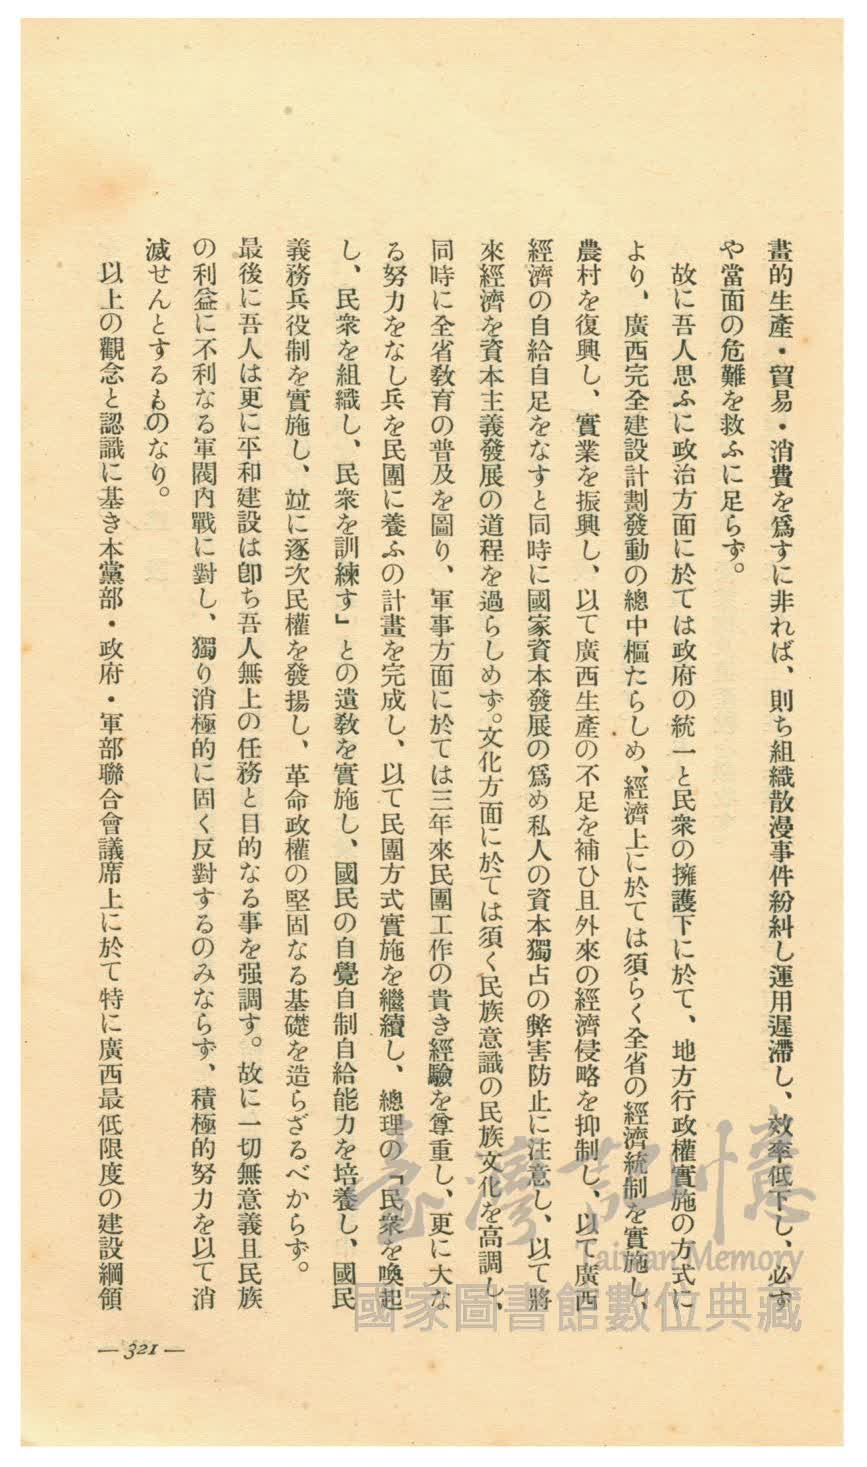 畫的生產・貿易・消費を爲すに非れば、則ち組織散漫事件紛糾し運用遲滯し、效率低下し、必ず
や當面の危難を救ふに足らず。
故に吾人思ふに政治方面に於ては政府の統一と民衆の擁護下に於て、地方行政權實施の方式に
より、廣西完全建設計劃發動の總中樞たらしめ、經濟上に於ては須らく全省の經濟統制を實施し、
農村を復興し、實業を振興し、以て廣西生產の不足を補ひ且外來の經濟侵略を抑制し、以て廣西
經濟の自給自足をなすと同時に國家資本發展の爲め私人の資本獨占の弊害防止に注意し、以て將
來經濟を資本主義發展の道程を過らしめず。文化方面に於ては須く民族意識の民族文化を高調し、
同時に全省敎育の普及を圖り、軍事方面に於ては三年來民團工作の貴き經驗を尊重し、更に大な
る努力をなし兵を民團に養ふの計畫を完成し、以て民團方式實施を繼續し、總理の「民衆を喚起
し、民衆を組織し、民衆を訓練す」との遺敎を實施し、國民の自覺自制自給能力を培養し、國民
義務兵役制を實施し、竝に逐次民權を發揚し、革命政權の堅固なる基礎を造らざるべからず。
最後に吾人は更に平和建設は卽ち吾人無上の任務と目的なる事を强調す。故に一切無意義且民族
の利益に不利なる軍閥內戰に對し、獨り消極的に固く反對するのみならず、積極的努力を以て消
滅せんとするものなり。
以上の觀念と認識に基き本黨部・政府・軍部聯合會議席上に於て特に廣西最低限度の建設綱領
— 321 —
臺灣記憶
Taiwan Memory
國家圖書館數位典藏